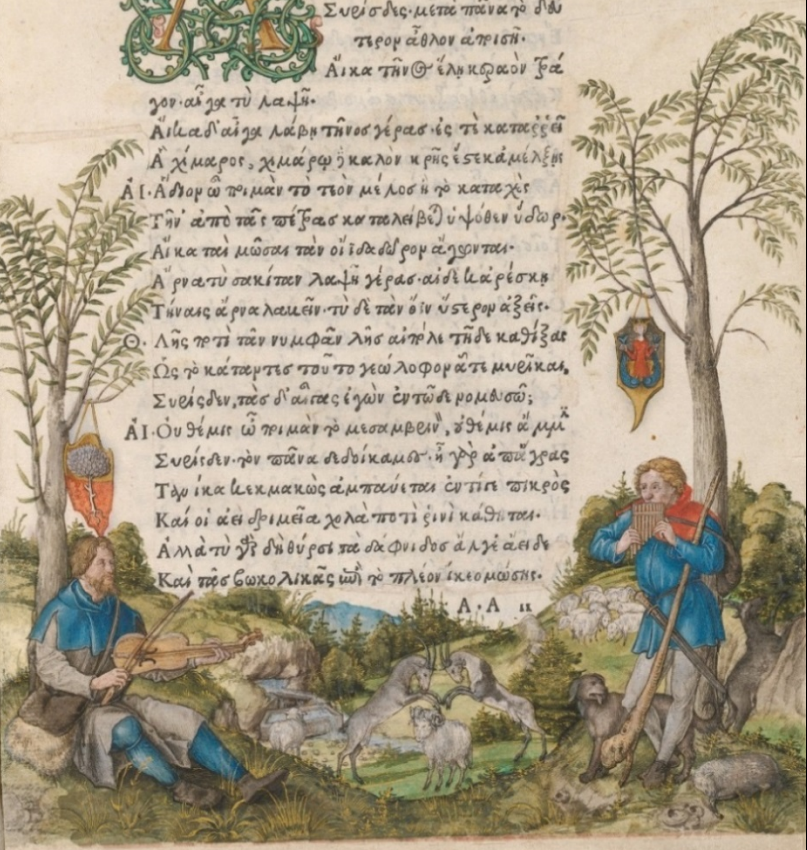 Συρίσδες· μετὰ πᾶνα τὸ δεύ
τερον ἆθλον ἀποισῇ.
Αἴκα τῆνος ἕλῃ κεραὸν τρά
γον· αἶγα τὺ λαψῇ.
Αἴκα δ' αἶγα λάβῃ τῆνος γέρας· ἐς τὲ καταρρεῖ
Ἁ χίμαρος, χιμάρω δὲ καλὸν κρῆς ἔστε κ' ἀμέλξῃς
ΑΙ. Ἅδιον ὦ ποιμὰν τὸ τεὸν μέλος ἢ τὸ καταχὲς
Τῆν' ἀπὸ τᾶς πέτρας καταλείβεται ὑψόθεν ὕδωρ.
Αἴκα ταὶ μῶσαι τὰν οἴιδα δῶρον ἄγωνται.
Ἄρνα τὺ σακίταν λαψῇ γέρας. αἰ δέ κ' ἀρέσκῃ
Τήναις ἄρνα λαβεῖν· τὺ δὲ τὰν ὄϊν ὕστερον ἀξεῖς.
Θ. Λῇς ποτὶ τᾶν νυμφᾶν λῇς αἰπόλε τῇδε καθίξας
Ὡς τὸ κάταντες τοῦτο γεώλοφον ᾇτε μυρῖκαι,
Συρίσδεν, τὰς δ' αἶγας ἐγὼν ἐν τῷδε νομευσῶ;
ΑΙ. Οὐ θέμις ὦ ποιμὰν τὸ μεσαμβρινὸν, οὐ θέμις ἄμμιν
Συρίσδεν· τὸν πᾶνα δεδοίκαμες· ἦ γὰρ ἀπ' ἄγρας
Τανίκα κεκμακὼς ἀμπαύεται ἐντί γε πικρὸς
Καί οἱ ἀεὶ δριμεῖα χολὰ ποτὶ ῥινὶ κάθηται.
Ἀλλὰ τὺ γὰρ δὴ θύρσι τὰ δάφνιδος ἄλγε' ἄειδε
Καὶ τᾶς βωκολικᾶς ἐπὶ τὸ πλέον ἵκεο μώσης.
A.A ii